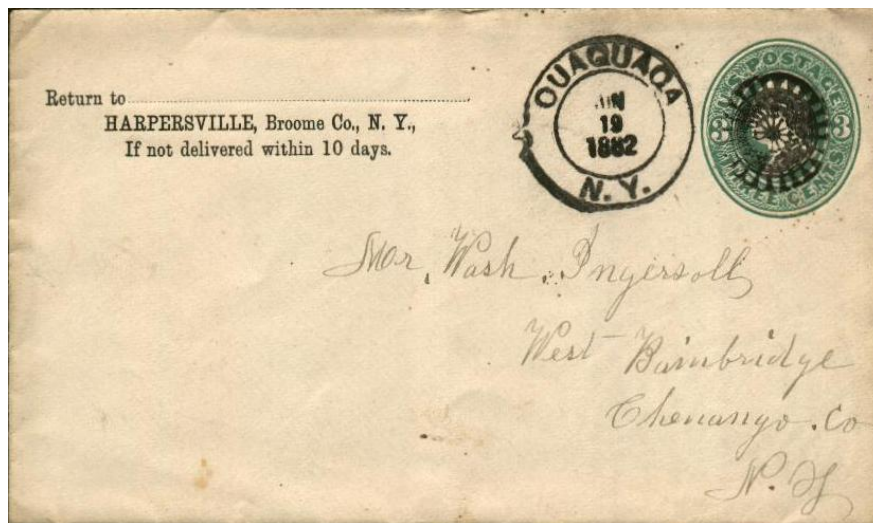 Return to
HARPERSVILLE, Broome Co., N. Y.,
If not delivered within 10 days.
OUAQUAGA
JUN
19
1882
N. Y.
U.S. POSTAGE
3 3
THREE CENTS
Mr. Wash. Ingersoll
West Bainbridge
Chenango. Co
N. Y